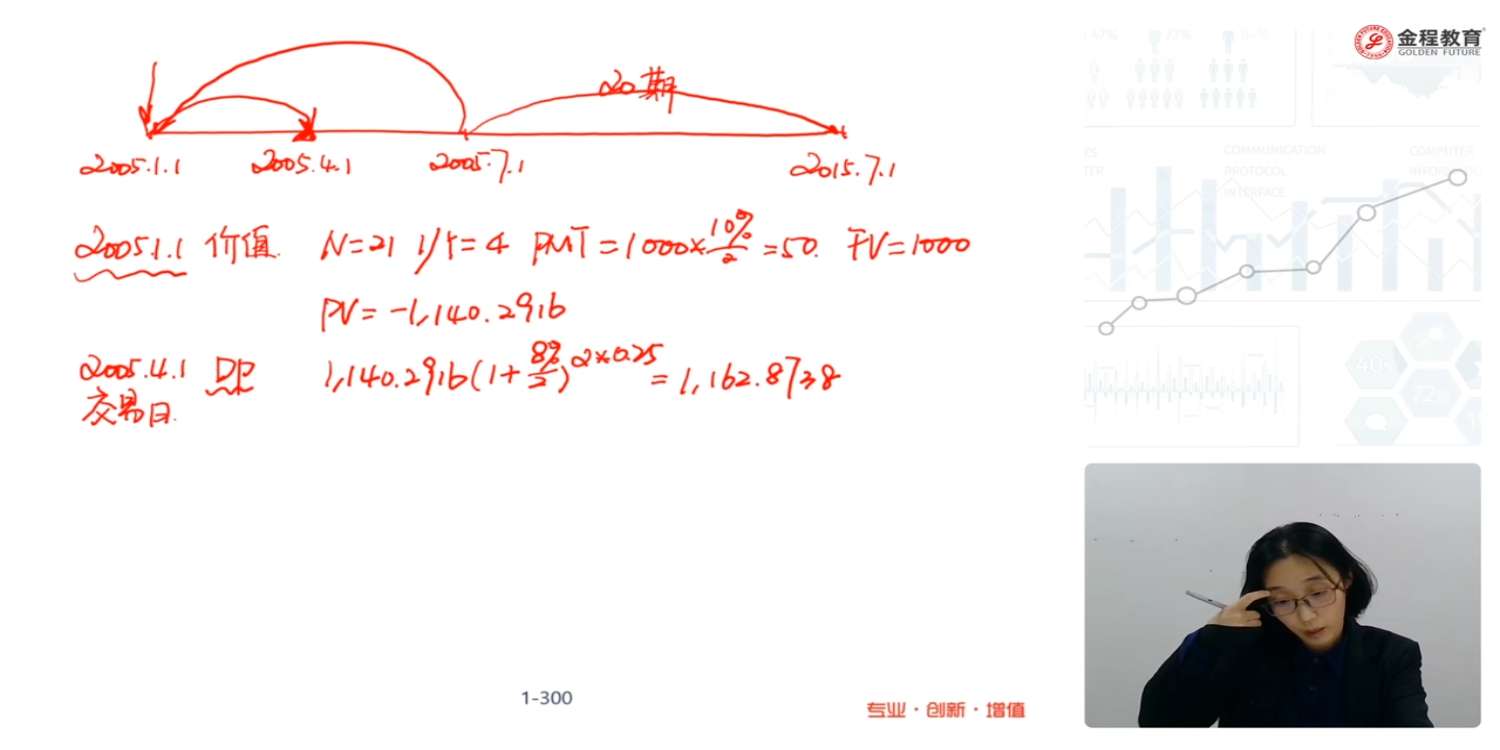 金程教育
GOLDEN FUTURE
COMMUNICATION
PROTOCOL
INTERFACE
COMPUTER
20期
2005.1.1 2005.4.1 2005.7.1 2015.7.1
2005.1.1 价值. N=21 I/Y=4 PMT=1000×10%/2=50. FV=1000
PV=-1,140.2916
2005.4.1 DP 1,140.2916(1+8%/2)^2×0.25=1,162.8738
交易日.
1-300
专业·创新·增值